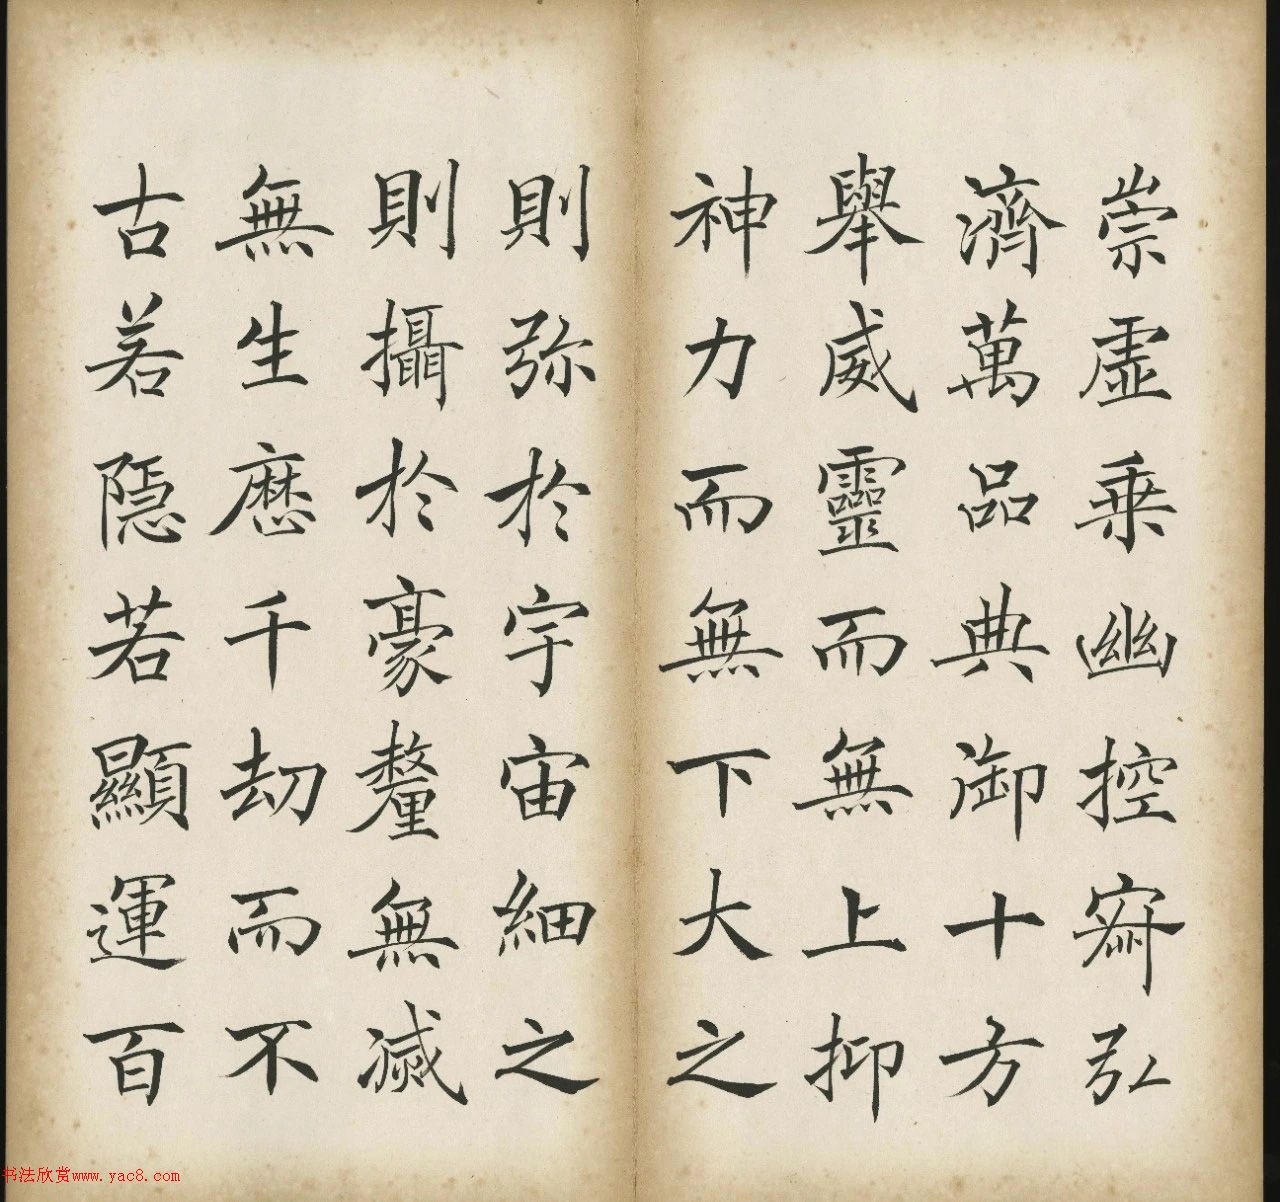 崇虛乘幽控寂弘
濟萬品典御十方
舉威靈而無上抑
神力而無下大之
則弥於宇宙細之
則攝於豪釐無滅
無生歷千劫而不
古若隱若顯運百
书法欣赏www.yac8.com